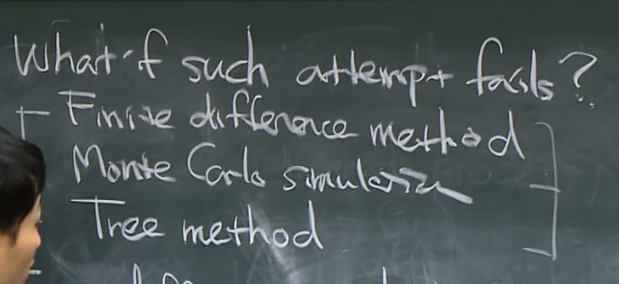 What if such attempt fails?
- Finite difference method
Monte Carlo simulation
Tree method